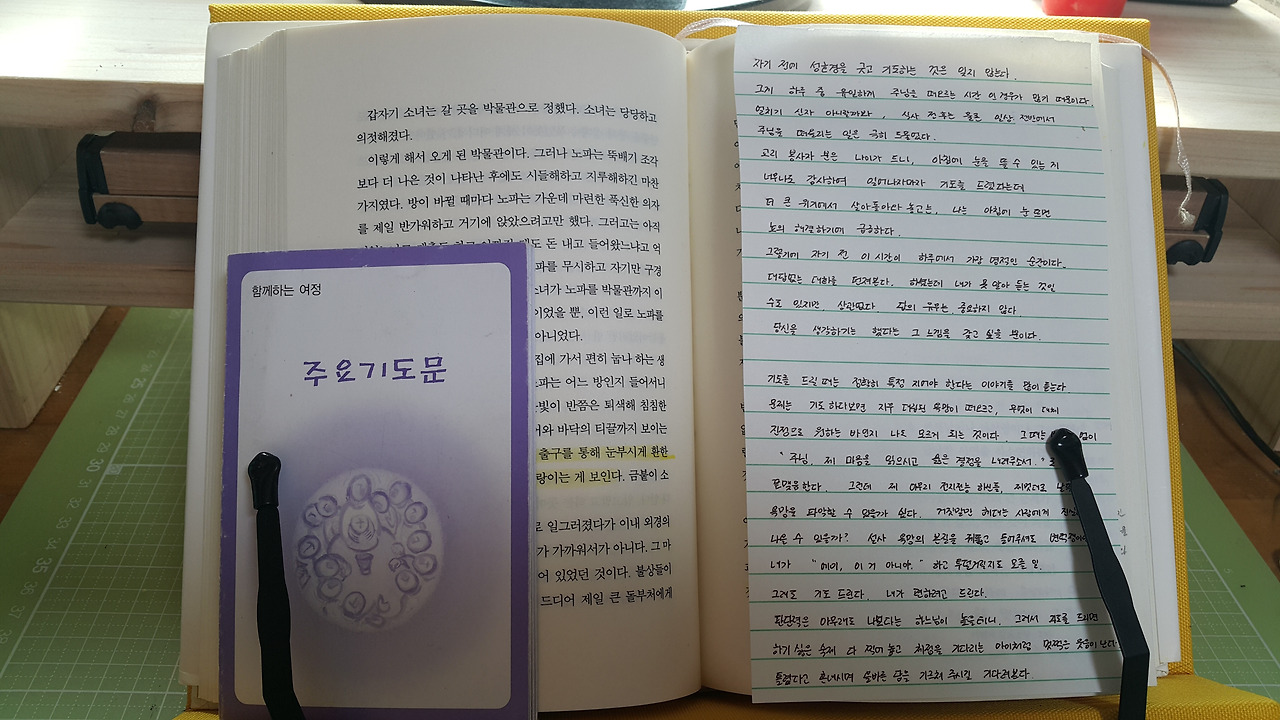 갑자기 소녀는 갈 곳을 박물관으로 정했다. 소녀는 당당하고
의젓해졌다.
이렇게 해서 오게 된 박물관이다. 그러나 노파는 뚝배기 조각
보다 더 나은 것이 나타난 후에도 시들해하고 지루해하긴 마찬
가지였다. 방이 바뀔 때마다 노파는 가운데 마련한 푹신한 의자
를 제일 반가워하고 거기에 앉았으려고만 했다. 그러고는 아직
도 돈 내고 들어왔느냐고 억
파를 무시하고 자기만 구경
녀가 노파를 박물관까지 이
이었을 뿐, 이런 일로 노파를
아니었다.
집에 가서 편히 눕나 하는 생
파는 어느 방인지 들어서니
빛이 반쯤은 퇴색해 침침한
와 바닥의 티끌까지 보이는
출구를 통해 눈부시게 환한
랑이는 게 보인다. 금붙이 소
로 일그러졌다가 이내 외경의
가 가까워서가 아니다. 그 마
어 있었던 것이다. 불상들이
드디어 제일 큰 돌부처에게
함께하는 여정
주요기도문
자기 전에 성호경을 긋고 기도하는 것은 잊지 않는다.
그게 하루 중 유일하게 주님을 떠오르는 시간인 경우가 많기 때문이다.
신자 아니랄까봐, 식사 전후는 물론 일상 전반에서
주님을 떠올리는 일은 극히 드물었다.
교리 봉사자 분은 나이가 드니, 아침에 눈을 뜰 수 있는 지
너무나도 감사하여 일어나자마자 기도를 드렸다는데
더 큰 위기에서 살아돌아와 놓고는, 나는 아침에 눈 뜨면
뇨의 해결하기에 급급하다.
그렇기에 자기 전 이 시간이 하루에서 가장 영적인 순간이다.
대답없는 대화를 던져본다. 어쩌면 내가 못 알아 듣는 것일
수도 있지만 상관없다. 답의 유무는 중요하지 않다.
당신을 생각하기는 했다는 그 느낌을 갖고 싶을 뿐이다.
기도를 드릴 때는 정확히 특정 지어야 한다는 이야기를 많이 듣는다.
문제는 기도 하다보면 자꾸 다른 욕망이 떠오르고, 무엇이 대체
진정으로 원하는 바인지 나도 모르게 되는 것이다. 그때는
"주님, 제 마음을 읽으시고 옳은 결정을 내려주소서."
끝맺음한다. 그런데 제 아무리 전지전능 하신들, 제멋대로
욕망을 파악할 수 있을까 싶다. 거짓말만 해대는 사람에게
나올 수 있을까? 설사 욕망의 본질을 꿰뚫고 들어주셔도
내가 "에이, 이거 아니야." 하고 투정거릴지도 모를 일.
그래도 기도 드린다. 내가 편하려고 드린다.
판단력은 아무래도 나보다는 하느님이 높을테니. 그래서 기도를 드리면
하기 싫은 숙제 다 적어 놓고 처분을 기다리는 아이처럼 멋쩍은 웃음이 난다.
틀렸다고 혼내시며 올바른 답을 가르쳐 주시길 기다려본다.